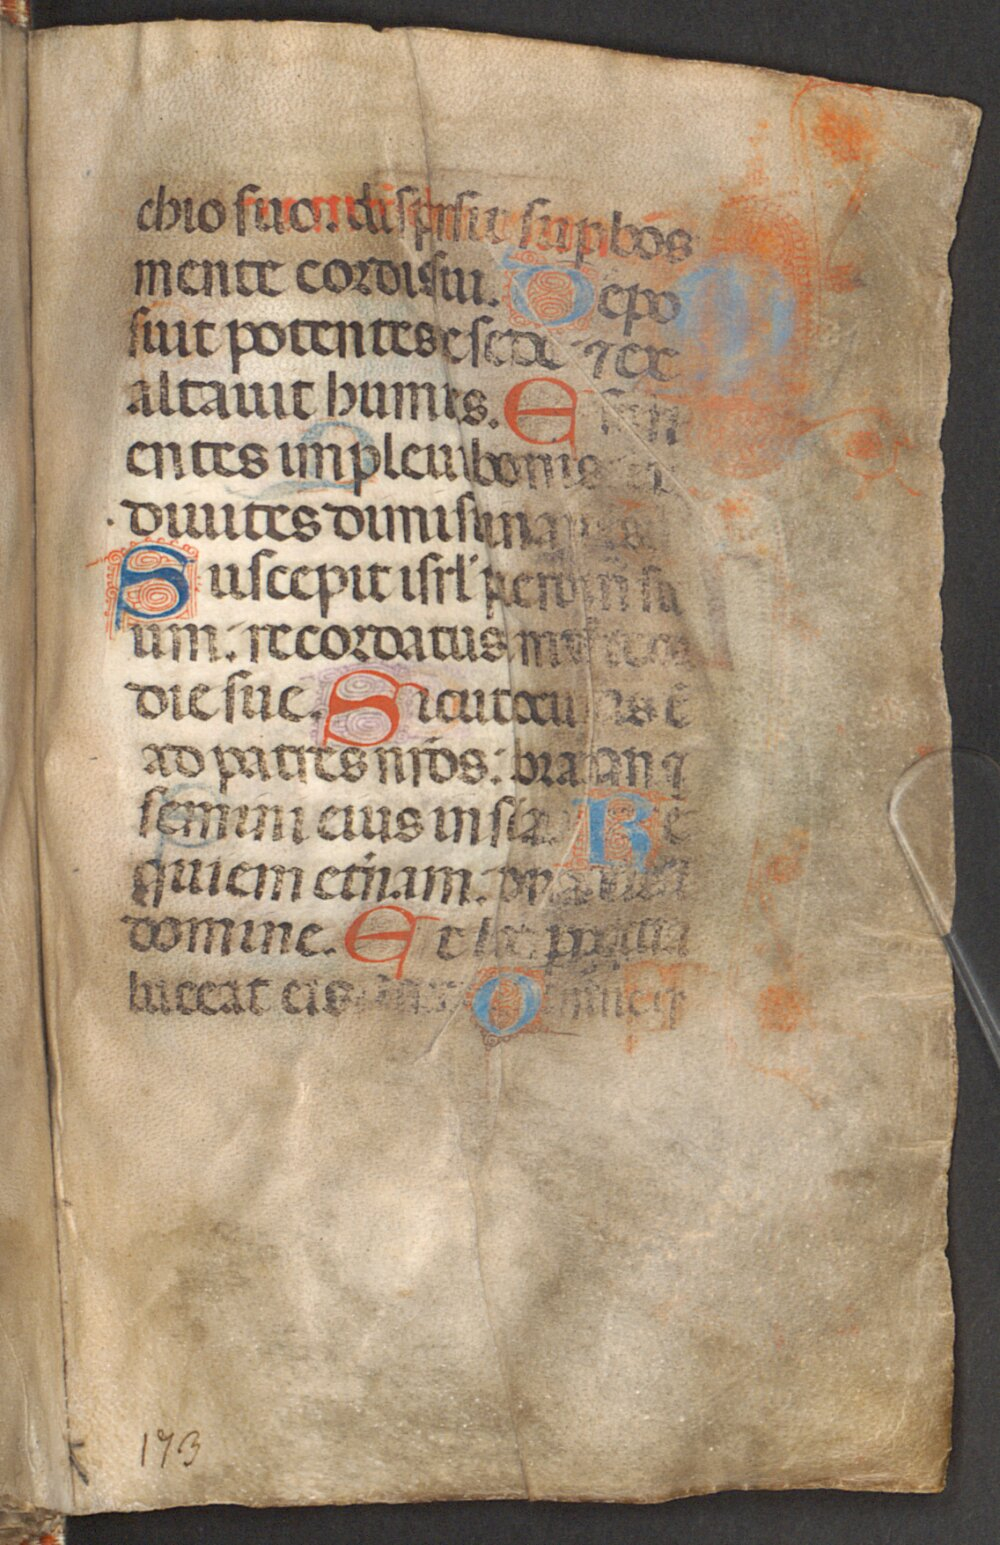 chio suo. dispersit supbos
mente cordis sui. Depo
suit potentes e sede ⁊ ex
altavit humiles. Esuri
entes implevit bonis et
divites dimisit
Suscepit isrl' puerum su
um: recordatus
die sue. Sicut locutus ē
ad patres nr̄os: abraam ⁊
semini eius in scl̄a. Re
quiem etn̄am. dona eis
domine. Et lux ppetua
luceat eis
173